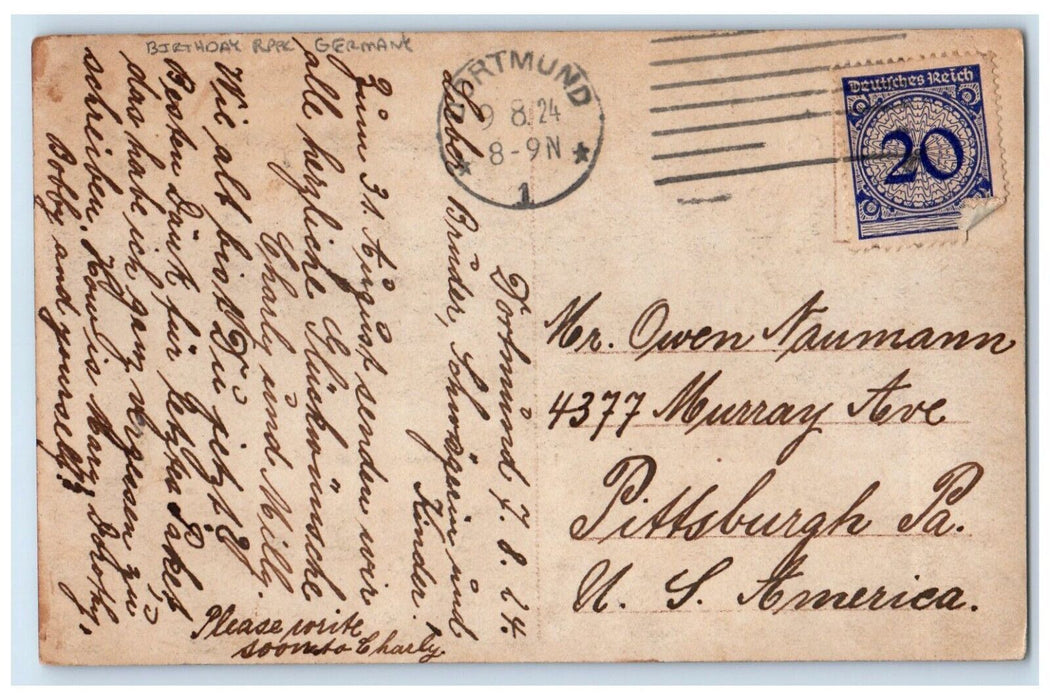 BIRTHDAY RPPC GERMANY
DORTMUND
9 8 24
8-9 N
1
Deutsches Reich
20
Dortmund, 7. 8. 24.
Lieber Bruder, Schwägerin und
Kinder!
Zum 31. August senden wir
alle herzliche Glückwünsche
Charly und Milly.
Wie alt bist Du jetzt?
Besten Dank für letztes Paket
das habe ich ganz vergessen zu
schreiben. How is Mary, Dorothy,
Bobby and yourself?
Please write
soon to Charly
Mr. Owen Naumann
4377 Murray Ave
Pittsburgh Pa.
U. S. America.